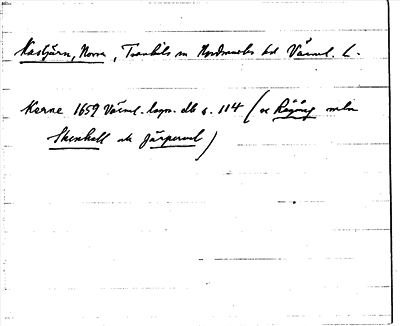 Kastjärn, Norra, Trankils sn Nordmarks hd Värml. l.
Kerne 1659 Värml. lagm. db s. 114 (se Rågång mln
Skenhall och Järperud)